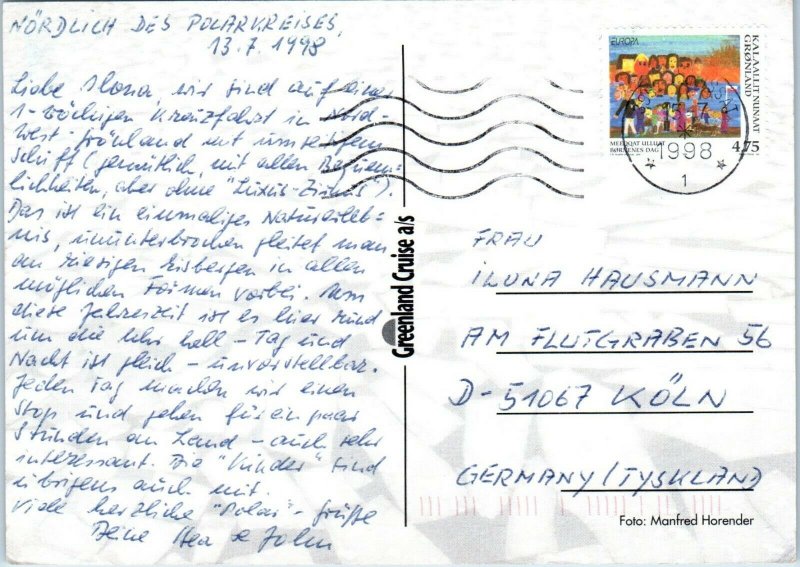 NÖRDLICH DES POLARKREISES,
13.7.1998
Liebe Ilona, wir sind auf einer
1-wöchigen Kreuzfahrt in Nord-
west-Grönland mit winzigem
Schiff (gemütlich, mit allen Bequem-
lichkeiten, aber ohne "Luxus-Zirkus").
Das ist ein einmaliges Naturerleb=
nis, ununterbrochen gleitet man
an riesigen Eisbergen in allen
möglichen Formen vorbei. Um
diese Jahreszeit ist es hier rund
um die Uhr hell - Tag und
Nacht ist gleich - unvorstellbar.
Jeden Tag machen wir einen
Stop und gehen für ein paar
Stunden an Land - auch sehr
interessant. Die "Kinder" sind
übrigens auch mit.
Viele herzliche "Polar"-Grüße
Deine & John
Greenland Cruise a/s
EUROPA
KALAALLIT NUNAAT
GRØNLAND
MEEQQAT ULLUAT
BØRNENES DAG
4,75
1998
1
FRAU
ILONA HAUSMANN
AM FLUTGRABEN 56
D-51067 KÖLN
GERMANY/(TYSKLAND)
Foto: Manfred Horender